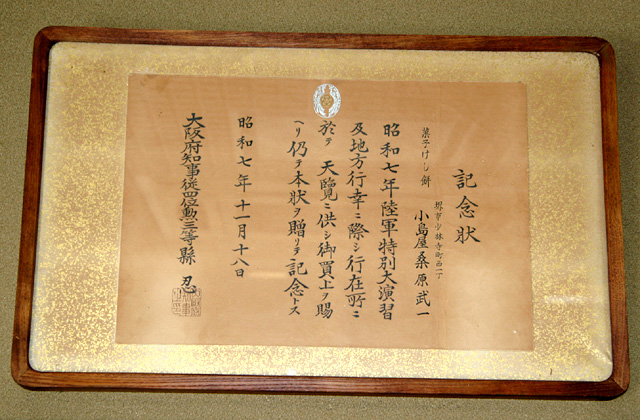 記念状
堺市少林寺町西二丁
小島屋桑原武一
菓子けし餅
昭和七年陸軍特別大演習
及地方行幸ニ際シ行在所ニ
於テ 天覽ニ供シ御買上ヲ賜
ヘリ仍テ本状ヲ贈リテ記念トス
昭和七年十一月十八日
大阪府知事従四位勲三等縣 忍